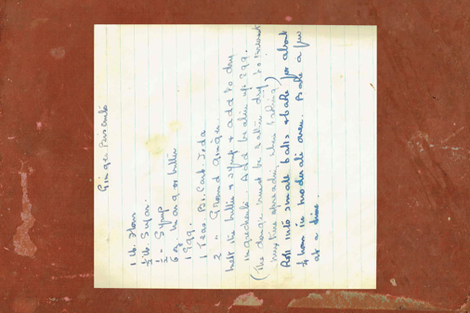 Ginger Biscuits
1 lb. Flour
½ lb. Sugar
½ - Syrup
6 oz marg or butter
1 Egg.
1 Teas. Bi. Carb Soda
2 " Ground Ginger
Melt the butter & syrup & add to dry
ingredients. Add beaten up egg.
(The dough must be rather dry to prevent
mixture spreading when baking)
Roll into small balls & bake for about
½ hour in moderate oven. Bake a few
at a time.